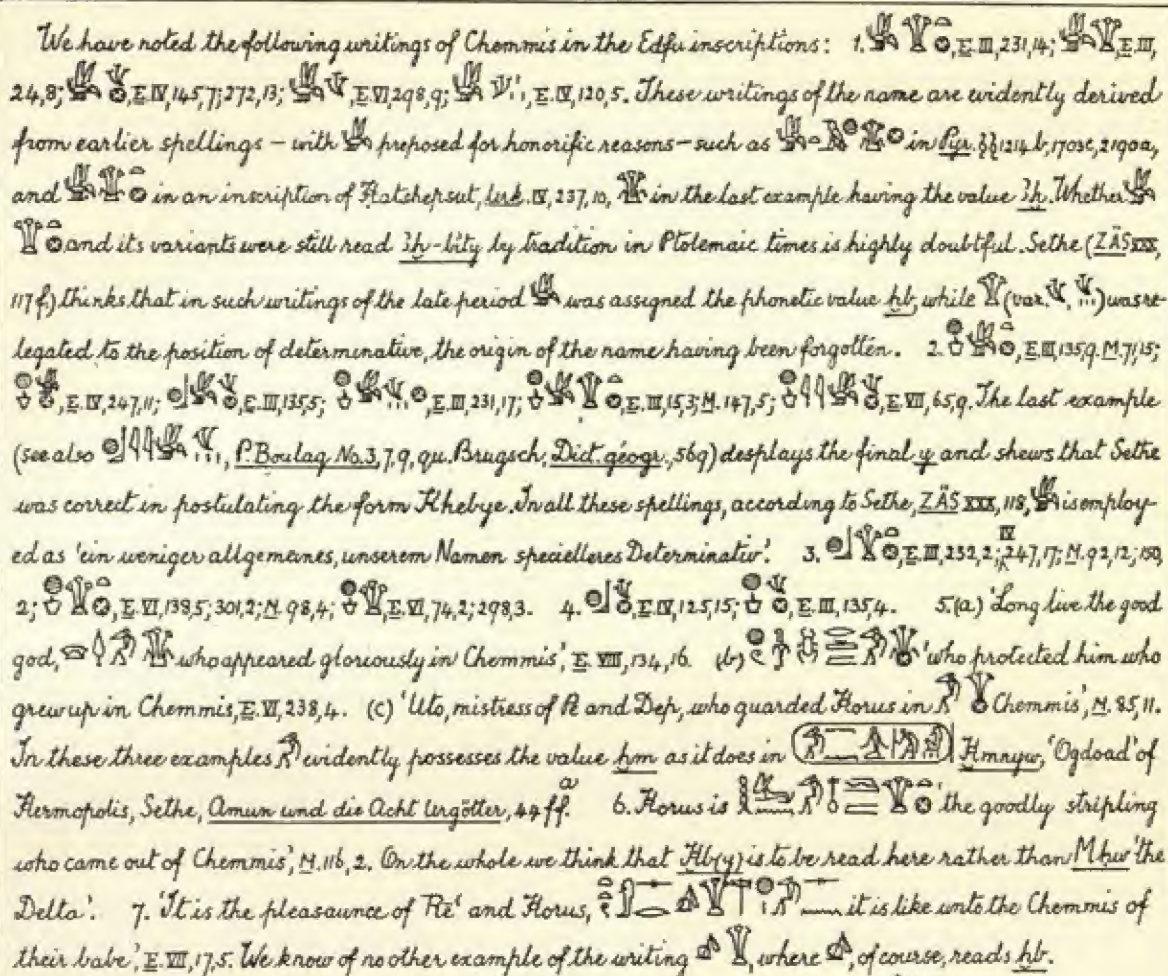 We have noted the following writings of Chemmis in the Edfu inscriptions: 1. , E. III, 231, 14; , E. III,
24, 8; , E. IV, 145, 7; 272, 13; , E. VI, 298, 9; , E. IV, 120, 5. These writings of the name are evidently derived
from earlier spellings – with preposed for honorific reasons – such as in Pyr. §§ 1214 b, 1703c, 2190a,
and in an inscription of Hatchepsut, Urk. IV, 237, 10, in the last example having the value ȝḫ. Whether
and its variants were still read ȝḫ-bity by tradition in Ptolemaic times is highly doubtful. Sethe (ZÄS XXX,
117 f.) thinks that in such writings of the late period was assigned the phonetic value ḫb, while (var. , ) was re-
legated to the position of determinative, the origin of the name having been forgotten. 2. , E. III, 135, 9. M. 71, 15;
, E. IV, 247, 11; , E. III, 135, 5; , E. III, 231, 17; , E. III, 15, 3; M. 147, 5; , E. VII, 65, 9. The last example
(see also , P. Boulaq No. 3, 7, 9, qu. Brugsch, Dict. géogr., 569) desplays the final y and shews that Sethe
was correct in postulating the form Khebye. In all these spellings, according to Sethe, ZÄS XXX, 118, is employ-
ed as 'ein weniger allgemeines, unserem Namen specielleres Determinativ'. 3. , E. III, 232, 2; IV 247, 17; M. 92, 12; 150,
2; , E. VI, 138, 5; 301, 2; M. 98, 4; , E. VI, 74, 2; 298, 3. 4. , E. IV, 125, 15; , E. III, 135, 4. 5. (a) 'Long live the good
god, who appeared gloriously in Chemmis', E. VIII, 134, 16. (b) 'who protected him who
grew up in Chemmis, E. VI, 238, 4. (c) 'Uto, mistress of Pe and Dep, who guarded Horus in Chemmis', M. 85, 11.
In these three examples evidently possesses the value ḫm as it does in Ḫmnyw, 'Ogdoad' of
Hermopolis, Sethe, Amun und die Acht Urgötter, 44 ff. a 6. Horus is 'the goodly stripling
who came out of Chemmis', M. 116, 2. On the whole we think that Ḫb(y) is to be read here rather than Mḥw 'the
Delta'. 7. 'It is the pleasaunce of Rēʿ and Horus, it is like unto the Chemmis of
their babe', E. VII, 17, 5. We know of no other example of the writing , where , of course, reads ḫb.